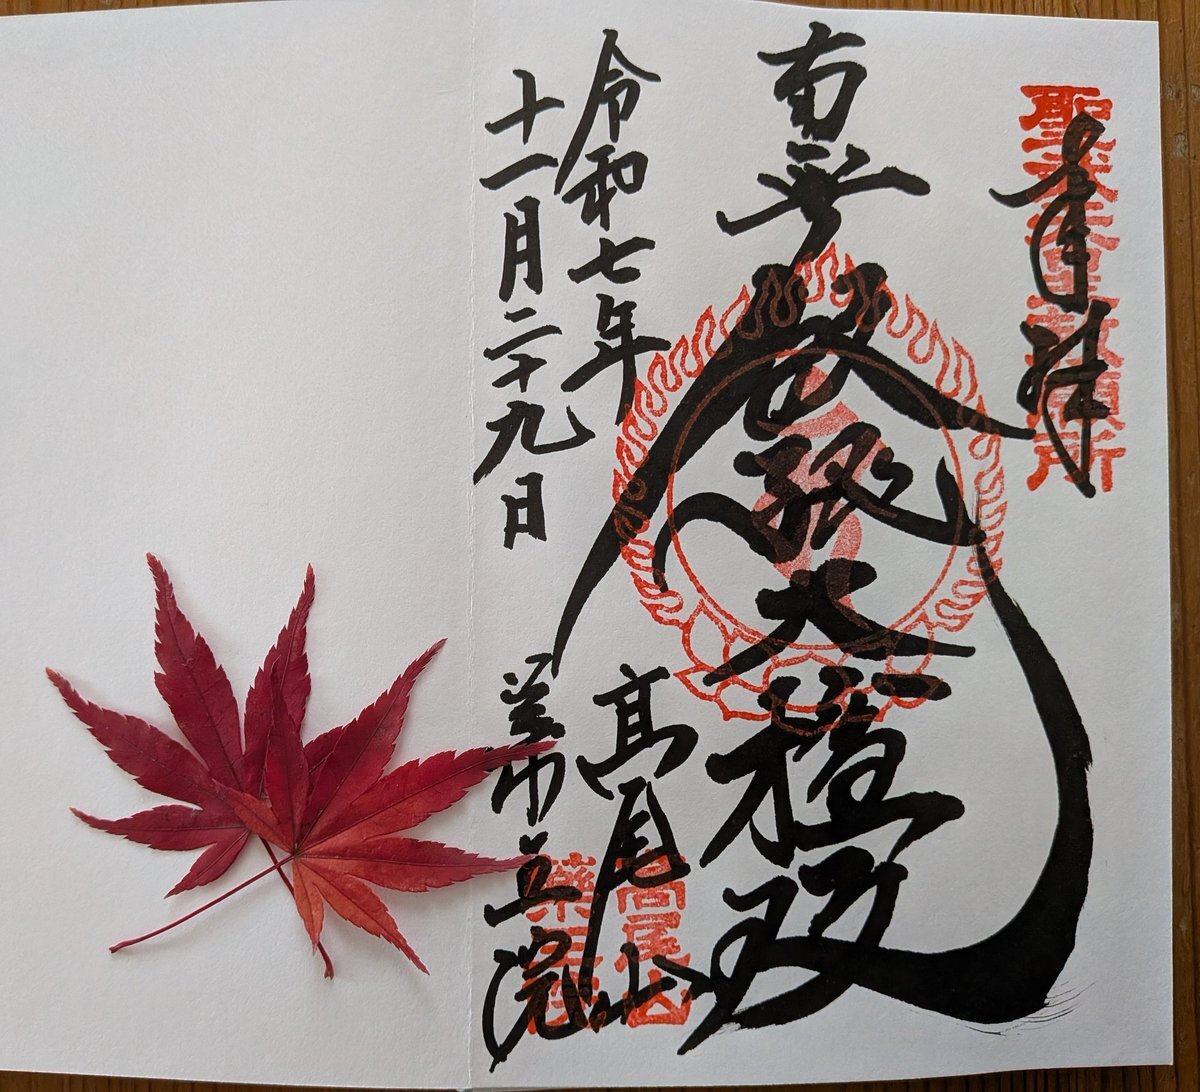 奉拝
聖武天皇勅願所
南無飯縄大権現
令和七年
十一月二十九日
高尾山
薬王院
高尾山
藥王院